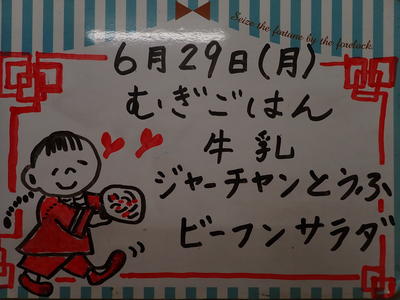 Seize the fortune by the forelock.
6月29日(月)
むぎごはん
牛乳
ジャーチャンとうふ
ビーフンサラダ